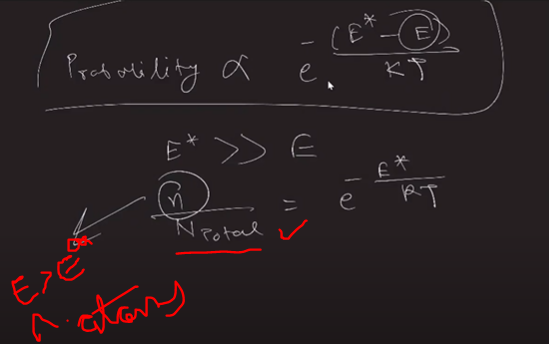 Probability ∝ e^{-(E* - E)/KT}
E* >> E
n/N_Total = e^{-E*/KT} ✓
E > E*
n. atoms